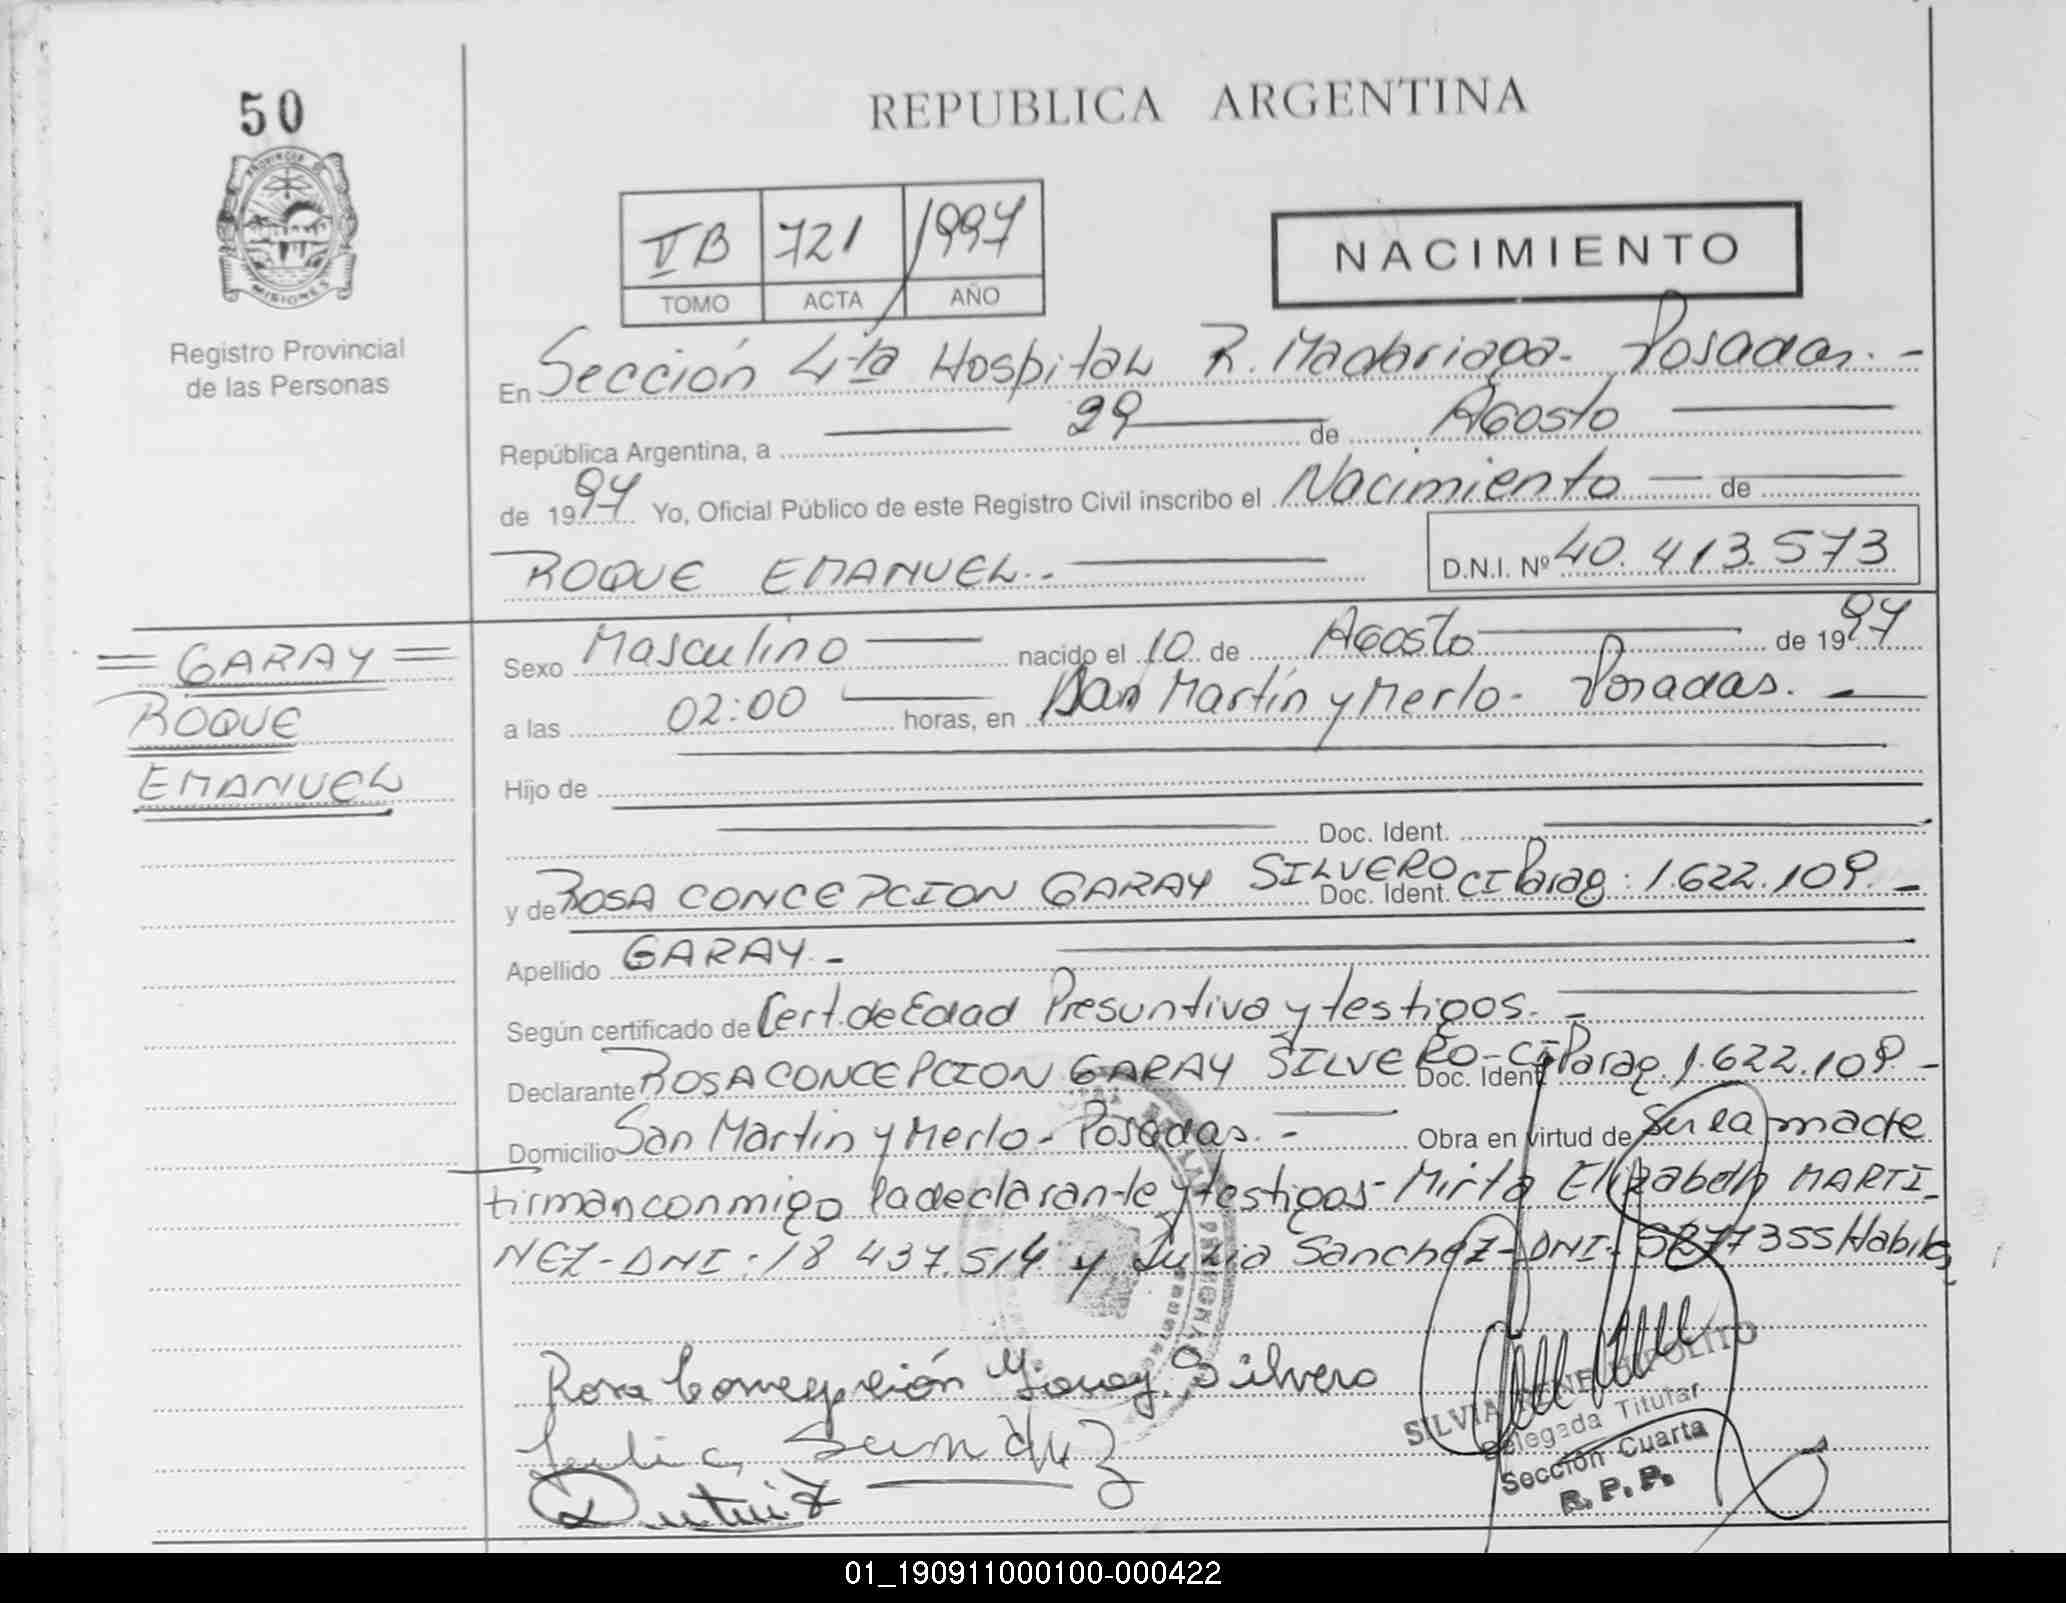 50
PROVINCIA DE
MISIONES
Registro Provincial
de las Personas
REPUBLICA ARGENTINA
VB 721 1997
TOMO ACTA AÑO
NACIMIENTO
En Sección 4ta Hospital R. Madariaga - Posadas. -
República Argentina, a 29 de Agosto
de 1997 Yo, Oficial Público de este Registro Civil inscribo el Nacimiento de
ROQUE EMANUEL.- D.N.I. Nº 40.413.573
= GARAY =
ROQUE
EMANUEL
Sexo Masculino nacido el 10 de Agosto de 1997
a las 02:00 horas, en San Martín y Merlo - Posadas. -
Hijo de
Doc. Ident.
y de ROSA CONCEPCION GARAY SILVERO Doc. Ident. CI Parag: 1.622.109. -
Apellido GARAY. -
Según certificado de Cert. de Edad Presuntiva y testigos. -
Declarante ROSA CONCEPCION GARAY SILVERO - Doc. Ident. CI Parag. 1.622.109. -
Domicilio San Martin y Merlo - Posadas. - Obra en virtud de ser la madre
firman conmigo la declarante y testigos - Mirta Elizabeth MARTI-
NEZ - DNI: 18 437.514 y Julia Sanchez - DNI- Habiles
Rosa Concepción Garay Silvero
Julia Sanchez
SILVIA IRENE HIPOLITO
Delegada Titular
Sección Cuarta
R. P. P.
01_190911000100-000422